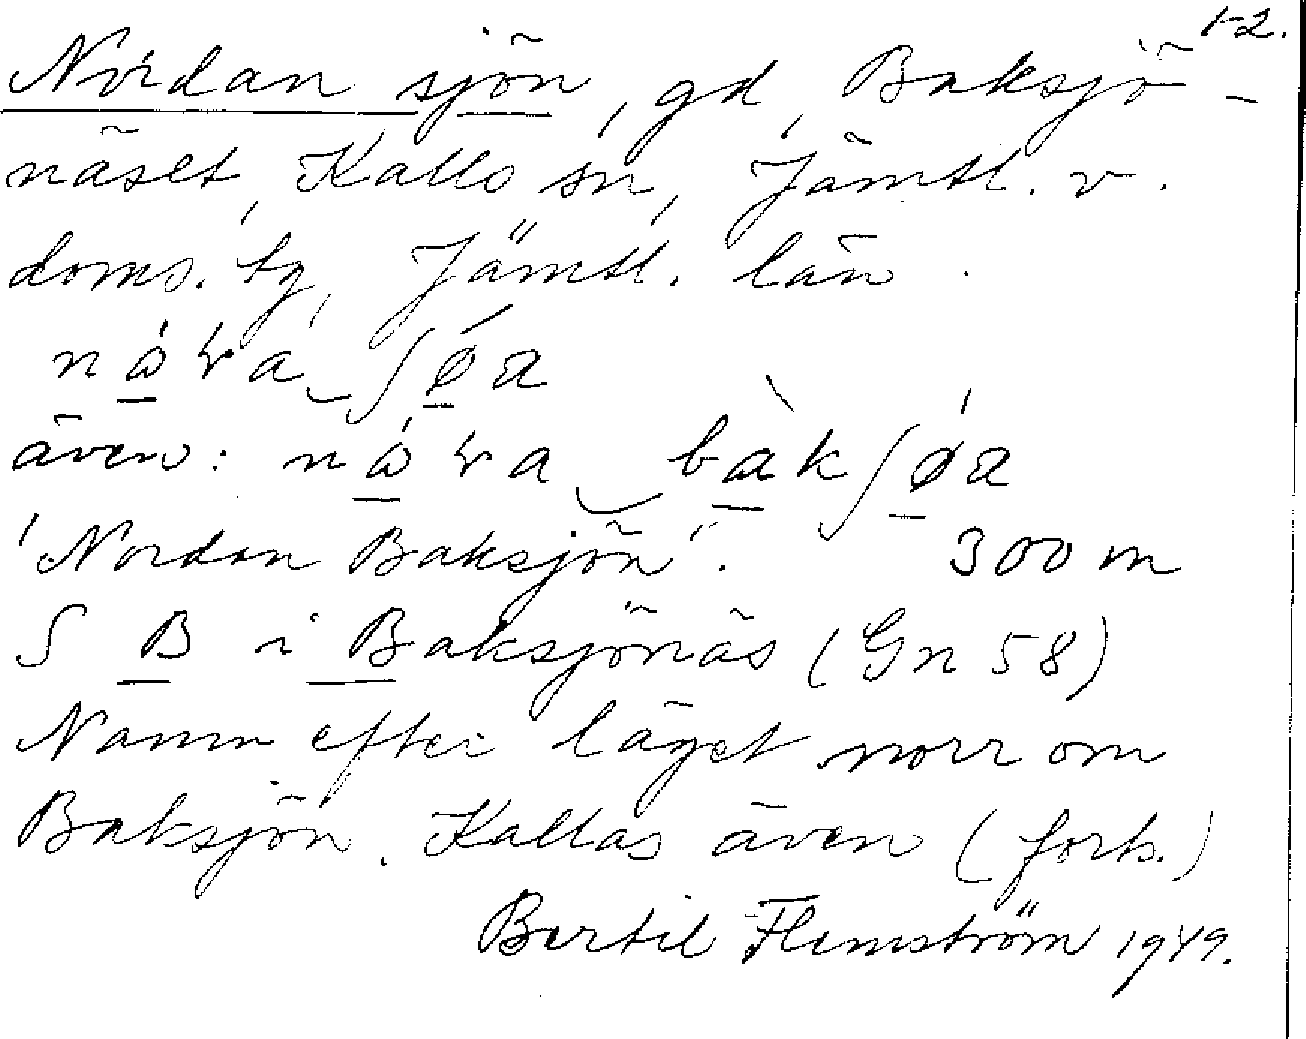 1-2.
Nordan sjön, gd, Baksjö-
näset, Kalls sn, Jämtl. v.
doms. tg, Jämtl. län.
även:
'Nordan Baksjön'. 300 m
S B i Baksjönäs (Gn 58)
Namn efter läget norr om
Baksjön. Kallas även (forts.)
Bertil Flemström 1949.